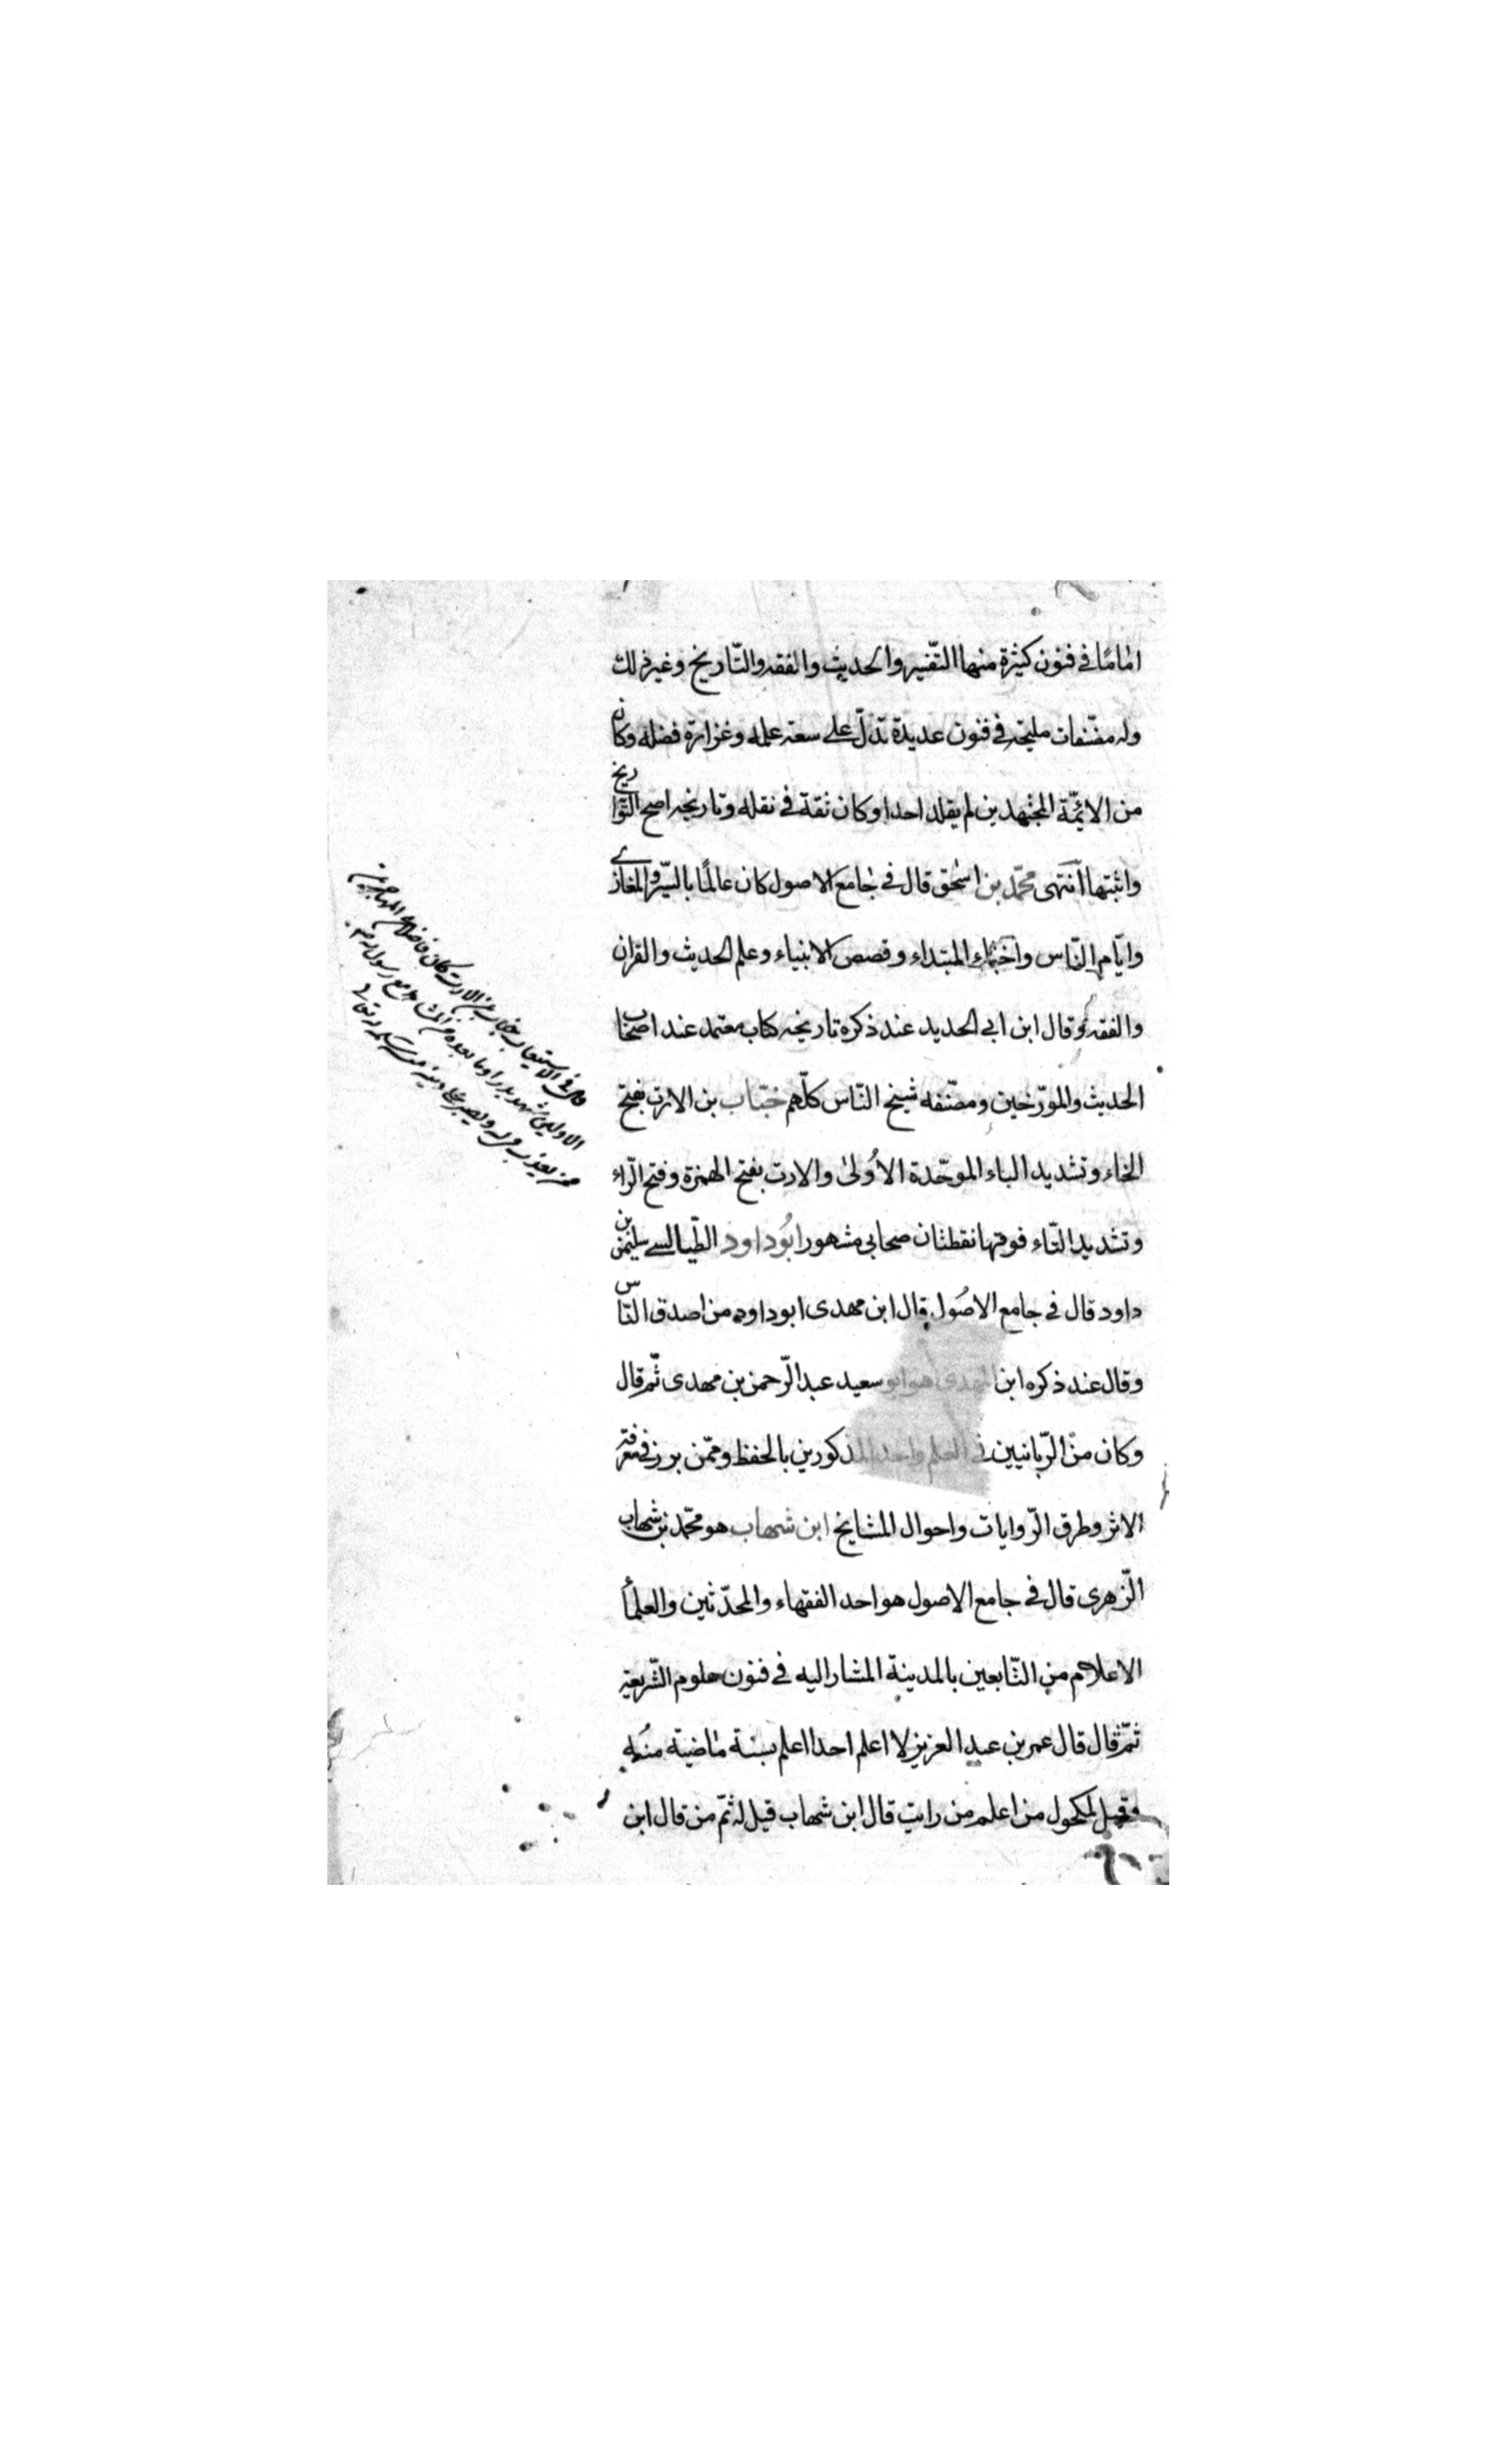 امامًا فى فنون كثيرة منها التّفسير والحديث والفقه والتّاريخ وغير ذلك
وله مصنّفات مليحة فى فنون عديدة تدلّ على سعة علمه وغزارة فضله وكان
من الائمّة المجتهدين لم يقلد احدا وكان ثقة فى نقله وتاريخه اصح التواريخ
واثبتها انتهى محمّد بن اسحق قال فى جامع الاصول كان عالمًا بالسيّر والمغازى
وايّام النّاس واخبار المبتداء وقصص الانبياء وعلم الحديث والقران
والفقه وقال ابن ابى الحديد عند ذكره تاريخه كتاب معتمد عند اصحاب
الحديث والمورّخين ومصنّفه شيخ النّاس كلّهم خبّاب بن الارت بفتح
الخاء وتشديد الباء الموحّدة الأولى والارت بفتح الهمزة وفتح الرّاء
وتشديد التّاء فوقها نقطتان صحابى مشهور ابُو داود الطّيالسے سليمن بن
داود قال فى جامع الاصُول قال ابن مهدى ابو داود من اصدق النّاس
وقال عند ذكره ابن المهدى هو ابو سعيد عبد الرّحمن بن مهدى ثمّ قال
وكان من الرّبانيين فى العلم واحد المذكورين بالحفظ وممّن برز فى معرفة
الاثر وطرق الرّوايات واحوال المشايخ ابن شهاب هو محمّد بن شهاب
الزّهرى قال فى جامع الاصول هو احد الفقهاء والمحدّثين والعلمأ
الاعلام من التّابعين بالمدينة المشار اليه فى فنون علوم الشّريعة
ثمّ قال قال عمر بن عبد العزيز لا اعلم احدا اعلم بسنة ماضية منه
وقيل لمكحول من اعلم من رايت قال ابن شهاب قيل له ثمّ من قال ابن
قال فى الاستيعاب خباب بن الارت كان فاضلا من المهاجرين
الاولين شهد بدرا وما بعدها من المشاهد مع رسول الله